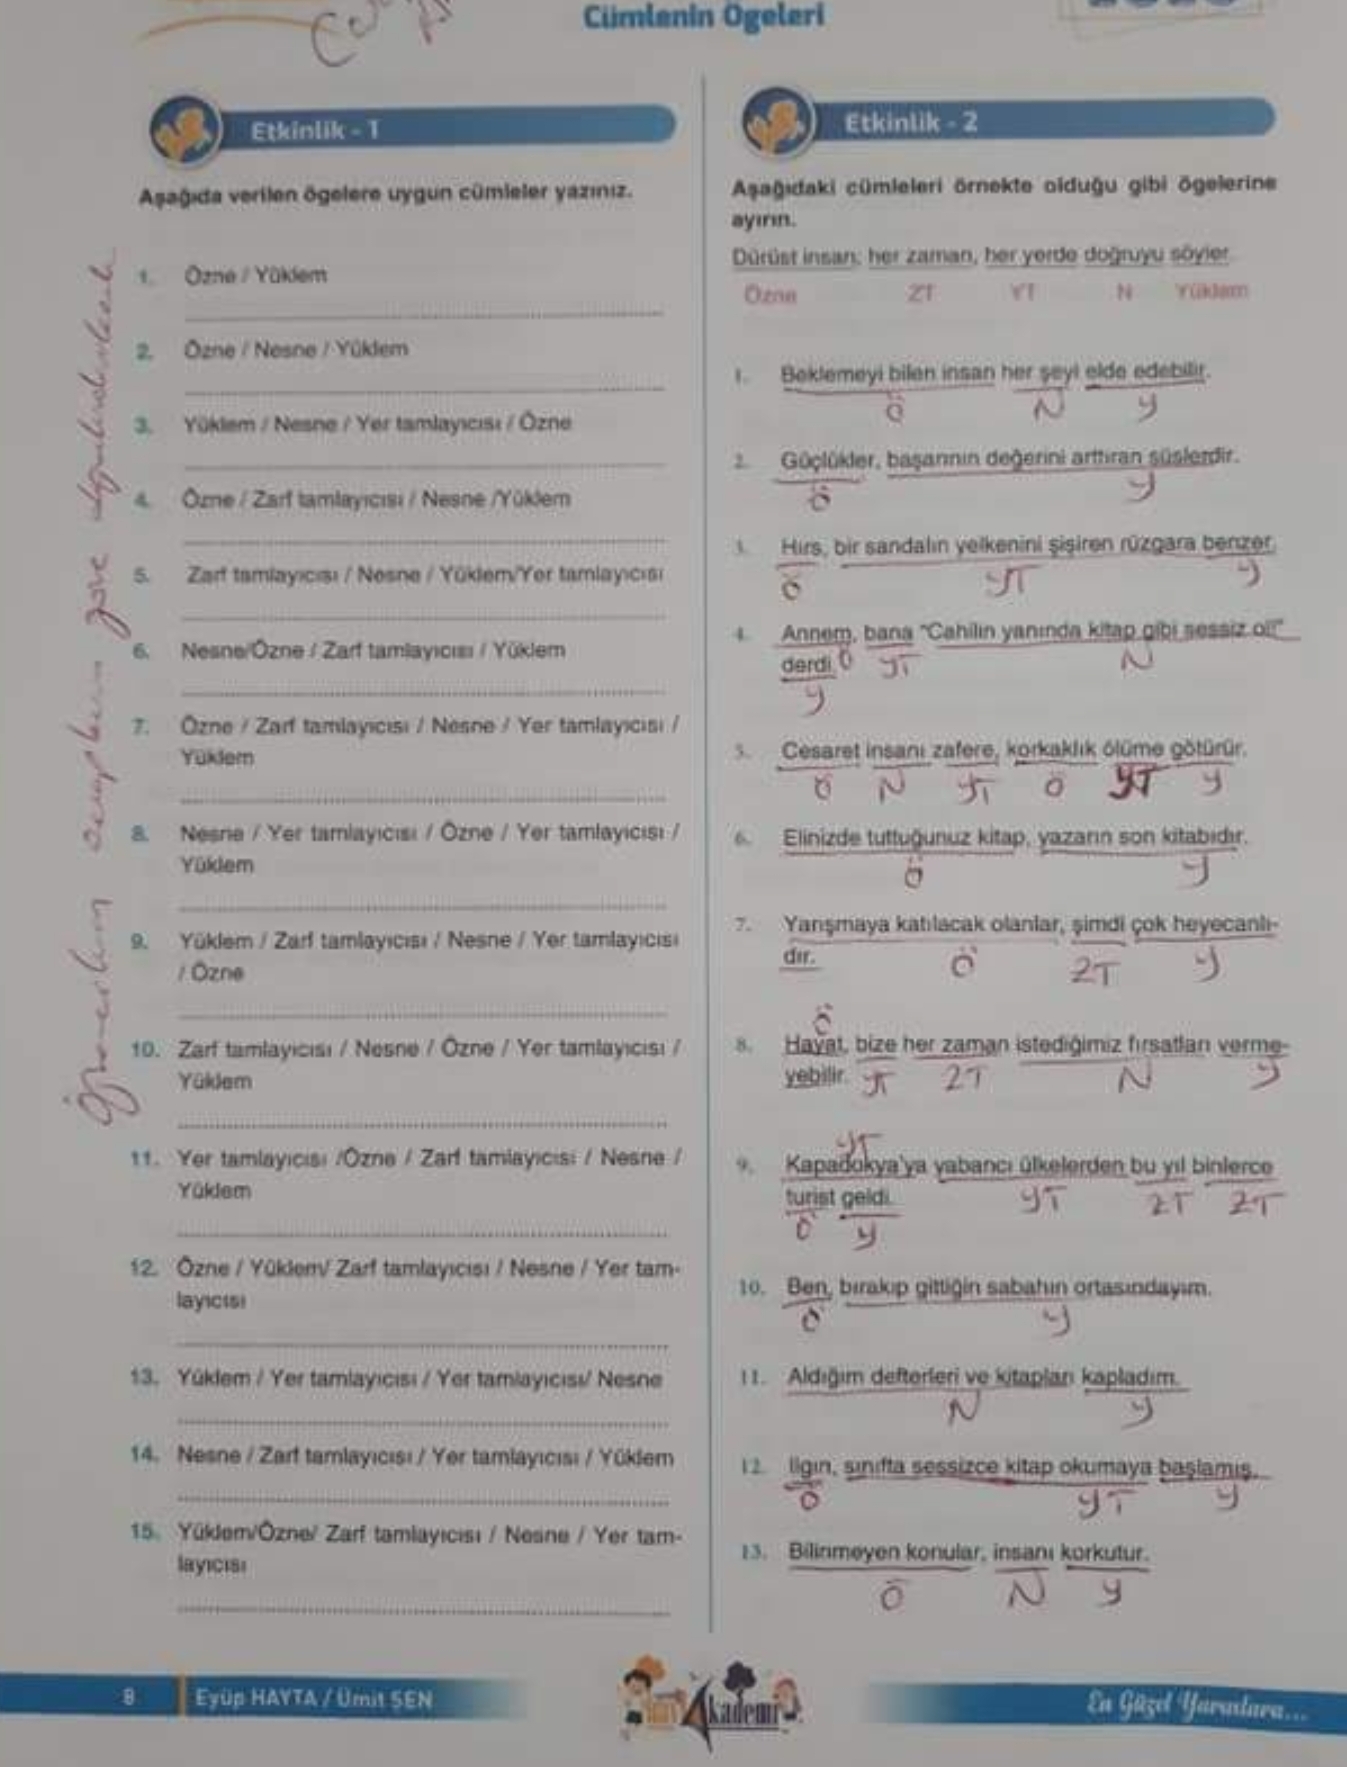 Cümlenin Ögeleri
Etkinlik - 1
Aşağıda verilen ögelere uygun cümleler yazınız.
1. Özne / Yüklem
2. Özne / Nesne / Yüklem
3. Yüklem / Nesne / Yer tamlayıcısı / Özne
4. Özne / Zarf tamlayıcısı / Nesne /Yüklem
5. Zarf tamlayıcısı / Nesne / Yüklem/Yer tamlayıcısı
6. Nesne/Özne / Zarf tamlayıcısı / Yüklem
7. Özne / Zarf tamlayıcısı / Nesne / Yer tamlayıcısı /
Yüklem
8. Nesne / Yer tamlayıcısı / Özne / Yer tamlayıcısı /
Yüklem
9. Yüklem / Zarf tamlayıcısı / Nesne / Yer tamlayıcısı
/ Özne
10. Zarf tamlayıcısı / Nesne / Özne / Yer tamlayıcısı /
Yüklem
11. Yer tamlayıcısı /Özne / Zarf tamlayıcısı / Nesne /
Yüklem
12. Özne / Yüklem/ Zarf tamlayıcısı / Nesne / Yer tam-
layıcısı
13. Yüklem / Yer tamlayıcısı / Yer tamlayıcısı/ Nesne
14. Nesne / Zarf tamlayıcısı / Yer tamlayıcısı / Yüklem
15. Yüklem/Özne/ Zarf tamlayıcısı / Nesne / Yer tam-
layıcısı
Öğrencilerin cevapların göre
Etkinlik - 2
Aşağıdaki cümleleri örnekte olduğu gibi ögelerine
ayırın.
Dürüst insan; her zaman, her yerde doğruyu söyler.
Özne ZT YT N Yüklem
1. Beklemeyi bilen insan her şeyi elde edebilir.
Ö N Y
2. Güçlükler, başarının değerini arttıran süslerdir.
Ö Y
3. Hırs, bir sandalın yelkenini şişiren rüzgara benzer.
Ö YT Y
4. Annem, bana "Cahilin yanında kitap gibi sessiz ol!"
derdi. Ö YT N
Y
5. Cesaret insanı zafere, korkaklık ölüme götürür.
Ö N YT Ö YT Y
6. Elinizde tuttuğunuz kitap, yazarın son kitabıdır.
Ö Y
7. Yarışmaya katılacak olanlar, şimdi çok heyecanlı-
dır. Ö ZT Y
Ö
8. Hayat, bize her zaman istediğimiz fırsatları verme-
yebilir. YT ZT N Y
YT
9. Kapadokya'ya yabancı ülkelerden bu yıl binlerce
turist geldi. YT ZT ZT
Ö Y
10. Ben, bırakıp gittiğin sabahın ortasındayım.
Ö Y
11. Aldığım defterleri ve kitapları kapladım.
N Y
12. Ilgın, sınıfta sessizce kitap okumaya başlamış.
Ö YT Y
13. Bilinmeyen konular, insanı korkutur.
Ö N Y
8 Eyüp HAYTA / Ümit ŞEN
Akademi
En Güzel Yarınlara...